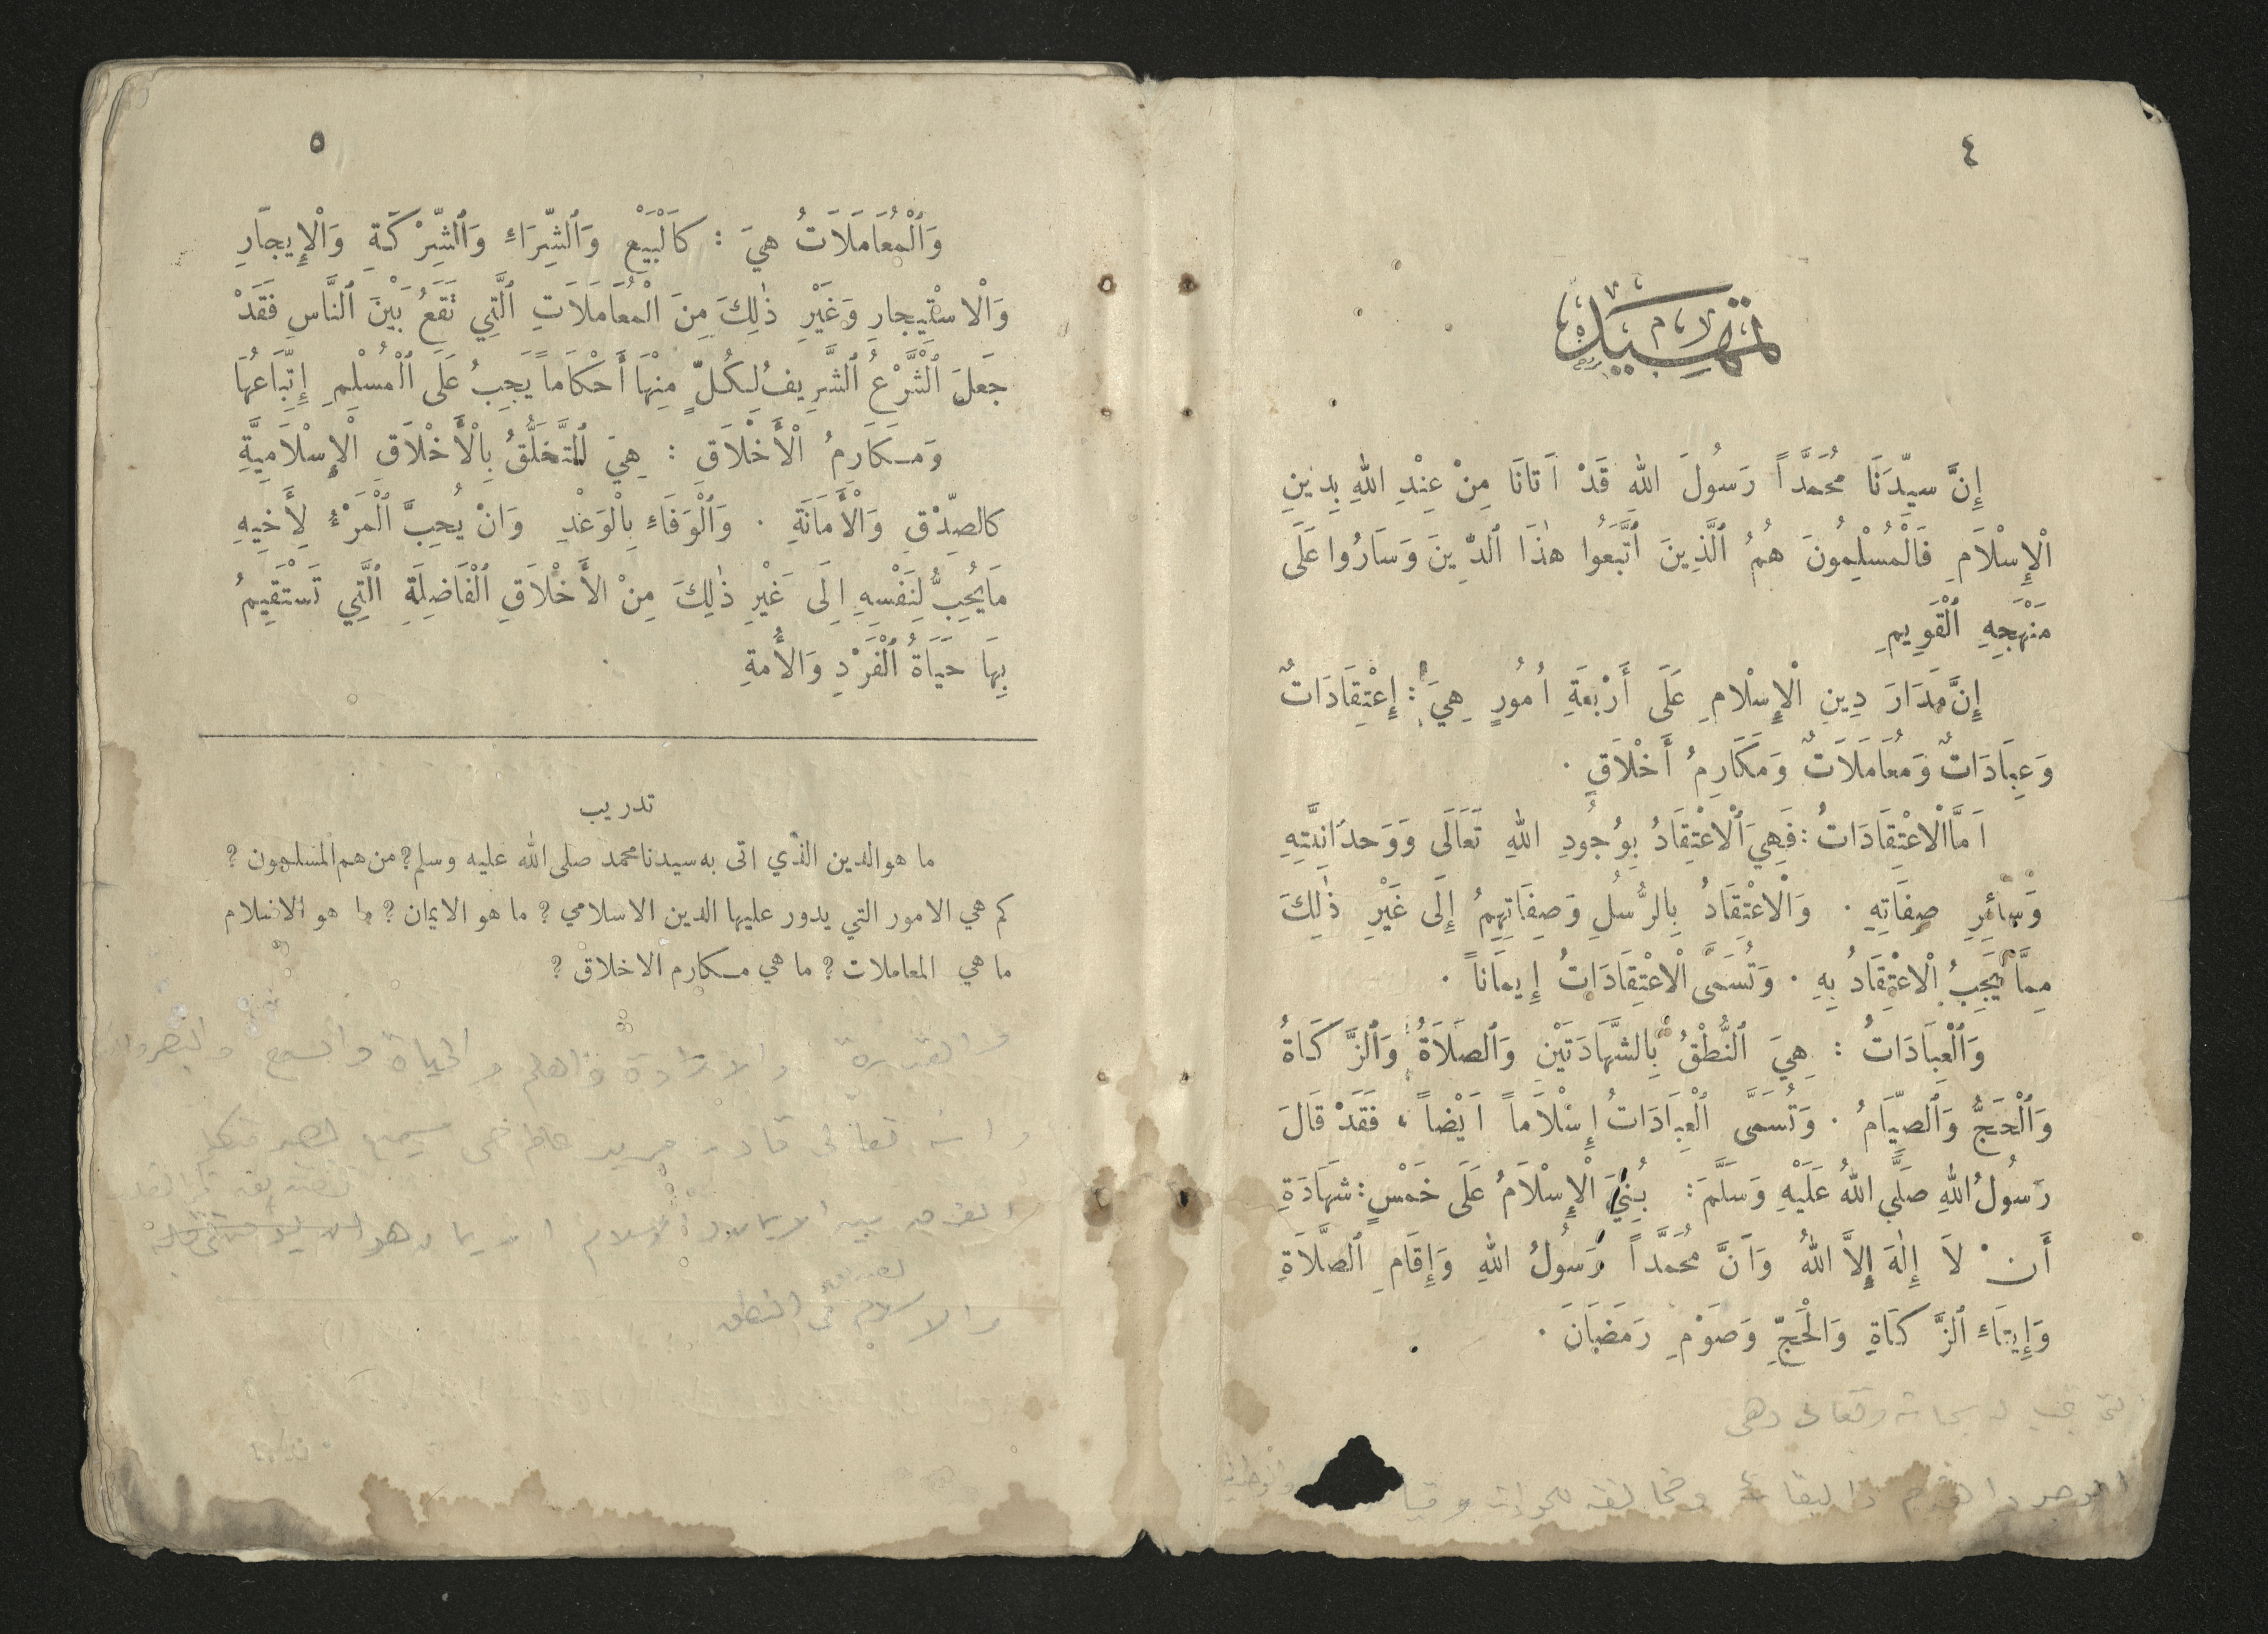 ٤
تمهيد
إِنَّ سيِّدَنَا مُحَمَّداً رَسُولَ اللهِ قَدْ اَتانَا مِنْ عِنْدِ اللهِ بِدِينِ
الْإِسْلَامِ فَالْمُسْلِمُونَ هُمُ ٱلَّذِينَ ٱتَّبَعُوا هٰذَا ٱلدِّينَ وَسَارُوا عَلَى
مَنْهَجِهِ ٱلْقَوِيمِ
إِنَّ مَدَارَ دِينِ الْإِسْلامِ عَلَى أَرْبَعَةِ اُمُورٍ هِيَ : إِعْتِقَادَاتٌ
وَعِبَادَاتٌ وَمُعَامَلَاتٌ وَمَكَارِمُ أَخْلَاقٍ .
اَمَّا الْاعْتِقَادَاتُ : فَهِيَ ٱلْاعْتِقَادُ بِوُجُودِ اللهِ تَعَالَى وَوَحدَانِيَّتِهِ
وَسَائِرِ صِفَاتِهِ . وَالْاعْتِقَادُ بِالرُّسُلِ وَصِفَاتِهِمُ إِلَى غَيْرِ ذٰلِكَ
مِمَّا يَجِبُ الْاعْتِقَادُ بِهِ . وَتُسَمَّى الْاعْتِقَادَاتُ إِيمَاناً .
وَٱلْعِبَادَاتُ : هِيَ ٱلنُّطْقُ بِالشَّهَادَتَيْنِ وَٱلصَّلَاةُ وَٱلزَّكَاةُ
وَٱلْحَجُّ وَٱلصِّيَامُ . وَتُسَمَّى ٱلْعِبَادَاتُ إِسْلَاماً اَيْضاً ، فَقَدْ قَالَ
رَسُولُ اللهِ صَلَّى اللهُ عَلَيْهِ وَسَلَّمَ : بُنِيَ الْإِسْلَامُ عَلَى خَمْسٍ : شَهَادَةِ
أَنْ لَا إِلٰهَ إِلَّا اللهُ وَاَنَّ مُحَمَّداً رَسُولُ اللهِ وَإِقَامِ ٱلصَّلَاةِ
وَإِيتَاءِ ٱلزَّكَاةِ وَالْحَجِّ وَصَوْمِ رَمَضَانَ .
سبحانه وتعالى وهي
٥
وَٱلْمُعَامَلَاتُ هيَ : كَالْبَيْعِ وَٱلشِّرَاءِ وَٱلشِّرْكَةِ وَالْإِيجَارِ
وَالْاسْتِيجارِ وَغَيْرِ ذٰلِكَ مِنَ الْمُعَامَلَاتِ ٱلَّتِي تَقَعُ بَيْنَ ٱلنَّاسِ فَقَدْ
جَعَلَ ٱلشَّرْعُ ٱلشَّرِيفُ لِكُلٍّ مِنْهَا أَحْكَاماً يَجِبُ عَلَى ٱلْمُسْلِمِ إِتِّبَاعُهَا
وَمَكَارِمُ الْأَخْلَاقِ : هِيَ ٱلتَّخَلُّقُ بِالْأَخْلَاقِ الْإِسْلَامِيَّةِ
كالصِّدْقِ وَالْأَمَانَةِ . وَٱلْوَفَاءِ بِالْوَعْدِ وَانْ يُحِبَّ ٱلْمَرْءُ لِأَخِيهِ
مَا يُحِبُّ لِنَفْسِهِ اِلَى غَيْرِ ذٰلِكَ مِنْ الأَخْلَاقِ ٱلْفَاضِلَةِ ٱلَّتِي تَسْتَقِيمُ
بِهَا حَيَاةُ ٱلْفَرْدِ وَالأُمةِ
تدريب
ما هو الدين الذي اتى به سيدنا محمد صلى الله عليه وسلم ؟ من هم المسلمون ؟
كم هي الامور التي يدور عليها الدين الاسلامي ؟ ما هو الايمان ؟ ما هو الاسلام
ما هي المعاملات ؟ ما هي مكارم الاخلاق ؟
والقدرة والارادة والعلم والحياة والسمع والبصر
قادر مريد سميع
والاسلام النطق